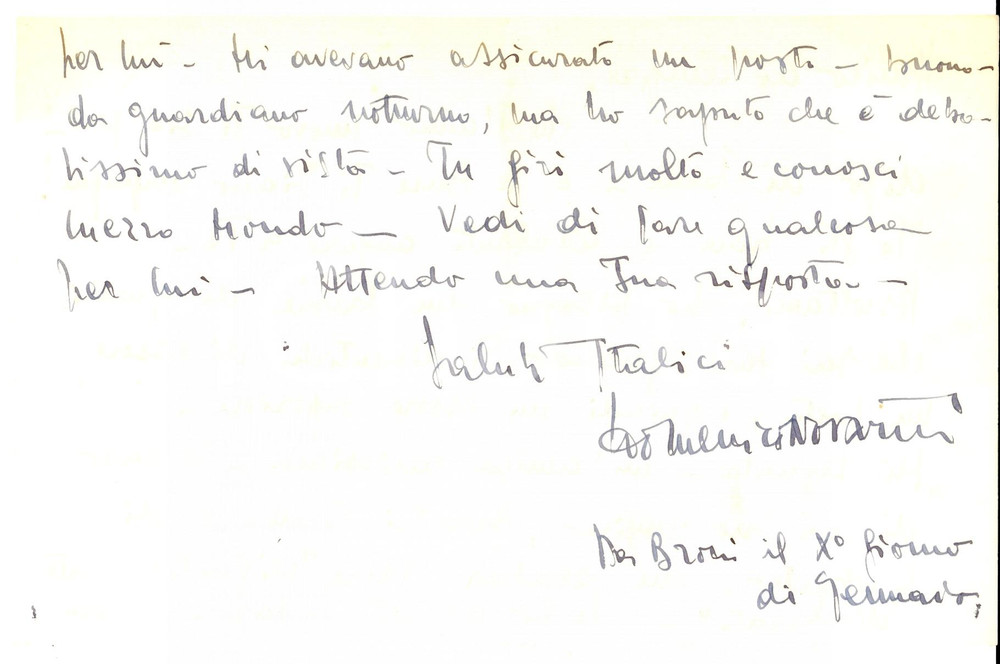 per lui - Mi avevano assicurato un posto - buono -
da guardiano notturno, ma ho saputo che è debo-
lissimo di vista - Tu giri molto e conosci
mezzo Mondo - Vedi di fare qualcosa
per lui - Attendo una Tua risposta -
Saluti Italici
Domenico Novarini
Da Broni il X° Giorno
di Gennaio,